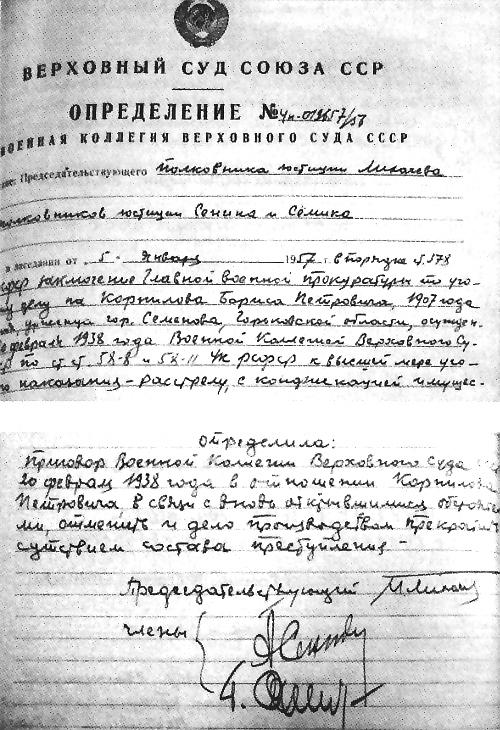 ВЕРХОВНЫЙ СУД СОЮЗА ССР
ОПРЕДЕЛЕНИЕ №
ВОЕННАЯ КОЛЛЕГИЯ ВЕРХОВНОГО СУДА СССР
Председательствующего полковника юстиции Лихачева
полковников юстиции Сенина и Семика
в заседании от "5" января 1957 г. в порядке ст. 378
заключение Главной военной прокуратуры по уго-
делу на Корнилова Бориса Петровича, 1907 года
уроженца гор. Семенова, Горьковской области, осужден.
февраля 1938 года Военной Коллегией Верховного Су-
по ст.ст. 58-8 и 58-11 УК РСФСР к высшей мере уго-
наказания - расстрелу, с конфискацией имущес-
определила:
Приговор Военной Коллегии Верховного Суда
20 февраля 1938 года в отношении Корнилова
Петровича, в связи с вновь открывшимися обстоятел
ми, отменить и дело производством прекратить
сутствием состава преступления -
Председательствующий
члены